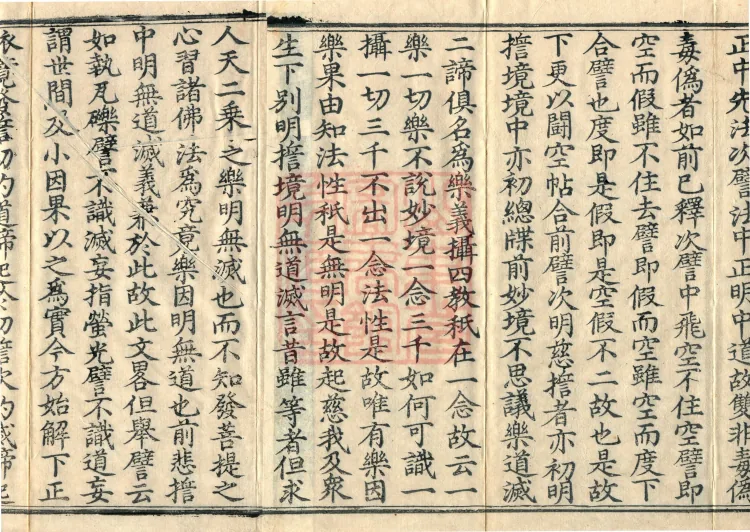 正中先法次譬法中正明中道故雙非毒偽
毒偽者如前已釋次譬中飛空不住空譬即
空而假雖不住去譬即假而空雖空而度下
合譬也度即是假即是空假不二故也是故
下更以鬪空帖合前譬次明慈擔者亦初明
擔境境中亦初總牒前妙境不思議樂道滅
二諦俱名為樂義攝四教秖在一念故云一
樂一切樂不說妙境一念三千如何可識一
攝一切三千不出一念法性是故唯有樂因
樂果由知法性秖是無明是故起慈我及眾
生下別明擔境明無道滅言昔雖等者但求
人天二乘之樂明無滅也而不知發菩提之
心習諸佛法為究竟樂因明無道也前悲擔
中明無道滅義兼於此故此文畧但舉譬云
如執瓦礫譬不識滅妄指螢光譬不識道妄
謂世間及小因果以之為實今方始解下正